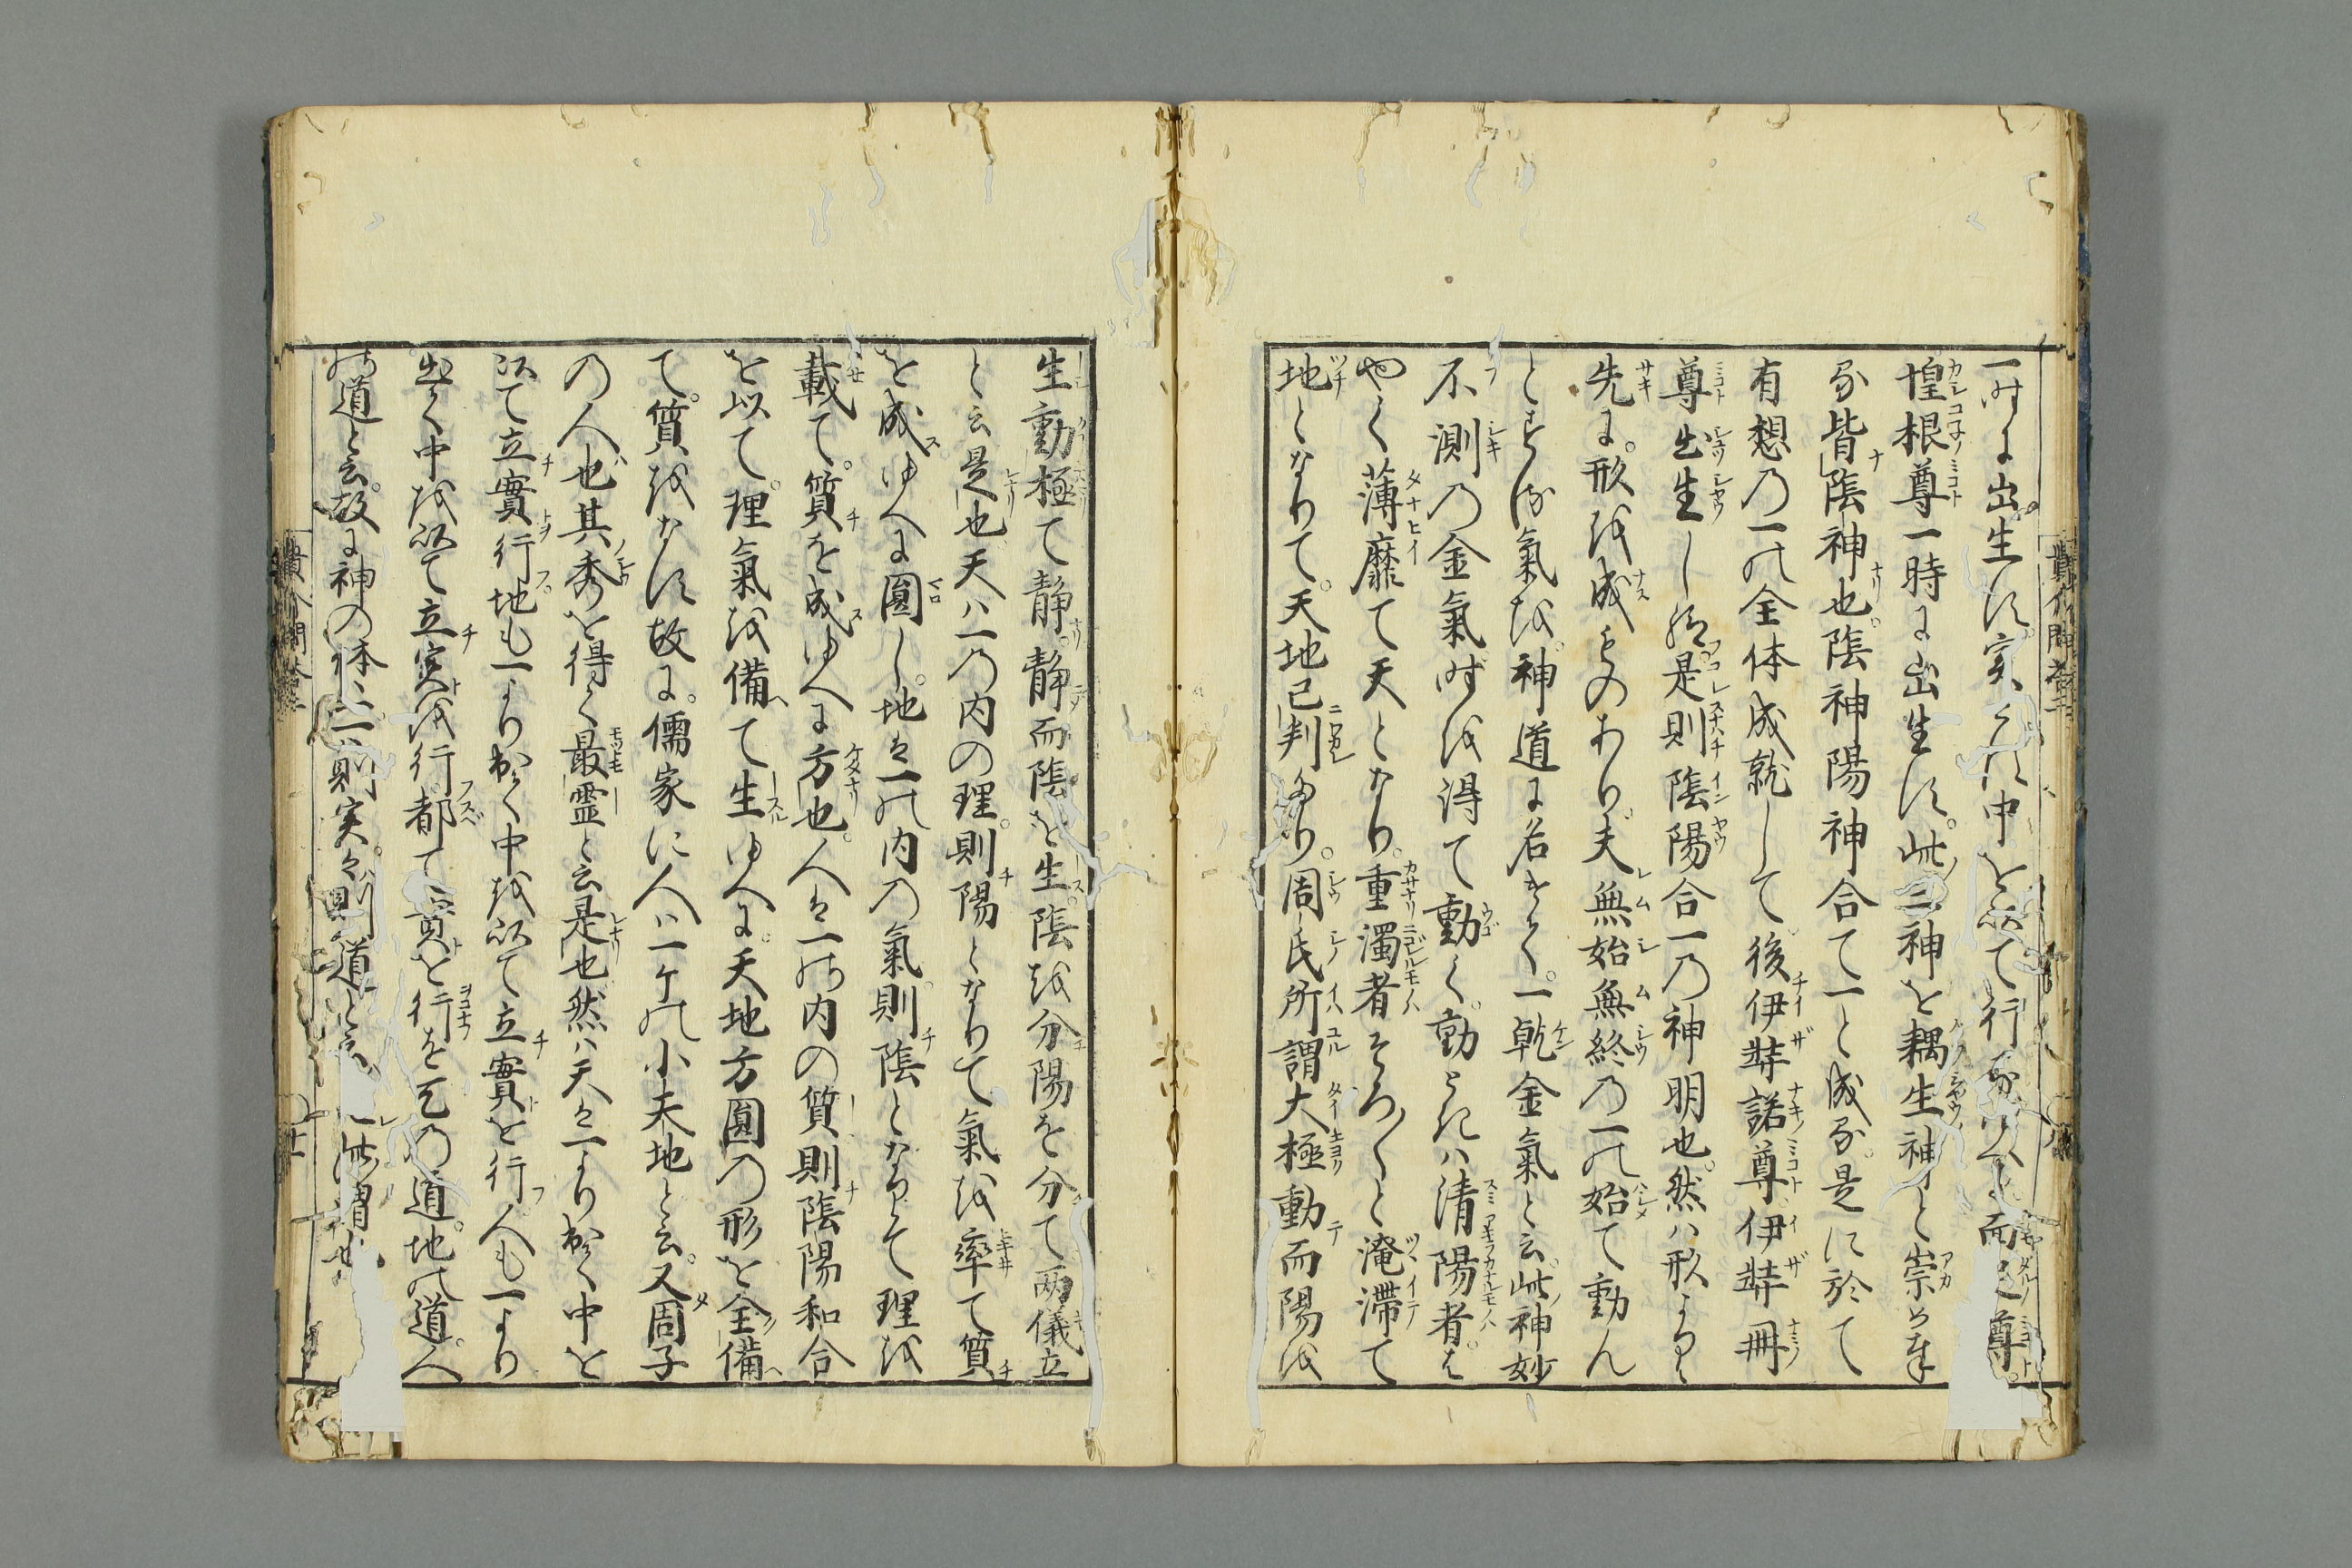 一時に出生す。実々は中を以て行ゆへに面足尊
惶根尊一時に出生す。此三神を耦生神と崇め奉
る皆陰神也。陰神陽神合て一と成る。是に於て
有想の一の全体成就して後伊弉諾尊伊弉冊
尊出生し給ふ。是則陰陽合一の神明也。然は形より
先に。形を成ものあり。夫無始無終の一の始て動ん
とする氣を。神道に名づく。一乾金氣と云此神妙
不測の金氣時を得て動く。動ときは清陽者は
やく薄靡て天となり。重濁者そろ〳〵と淹滞て
地となりて。天地已判たり。周氏所謂大極動而陽を
生動極て静静而陰を生陰を分陽を分て両儀立
と云是也天は一の内の理。則陽となりて氣を率て質
を成ゆへに圓し。地は一の内の氣。則陰となりて理を
載て。質を成ゆへに方也。人は一の内の質則陰陽和合
を以て。理氣を備て生ゆへに。天地方圓の形を全備
て。質をなす故に。儒家に人は一ケの小天地と云。又周子
の人也其秀を得て最霊と云是也然は天は一より出て中を
以て立實行地も一より出て中を以て立實を行人も一より
出て中を以て立実を行都て實を行を天の道。地の道。人
の道と云。故に神の体に則実は則道と云 此謂也